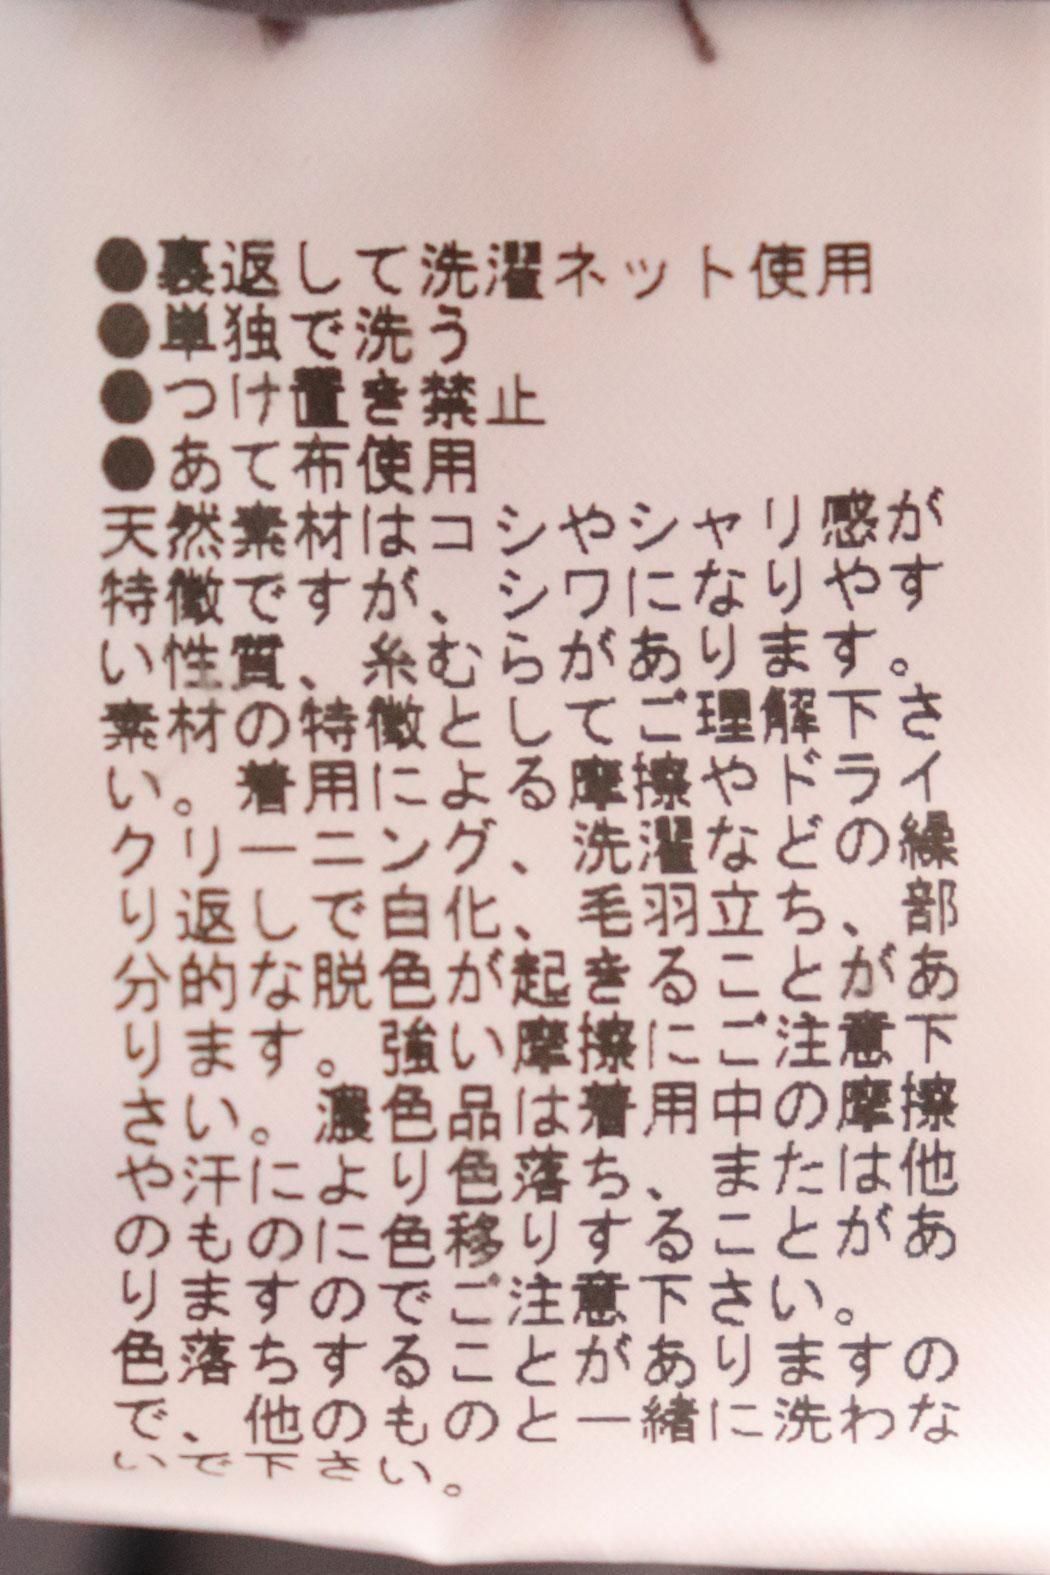 ●裏返して洗濯ネット使用
●単独で洗う
●つけ置き禁止
●あて布使用
天然素材はコシやシャリ感が
特徴ですが、シワになりやす
い性質、糸むらがあります。
素材の特徴としてご理解下さ
い。着用による摩擦やドライ
クリーニング、洗濯などの繰
り返しで白化、毛羽立ち、部
分的な脱色が起きることがあ
ります。強い摩擦にご注意下
さい。濃色品は着用中の摩擦
や汗により色落ち、または他
のものに色移りすることがあ
りますのでご注意下さい。
色落ちすることがありますの
で、他のものと一緒に洗わな
いで下さい。